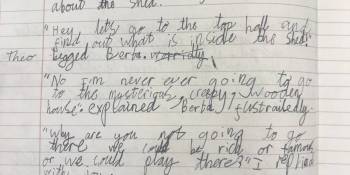 about the shed.
"Hey let's go to the top hall and
find out what is inside the shed"
Theo begged Berta.
"No I'm never ever going to go
to the mysterious, creapy, wooden
house" explained Berta, fustraitedly.
"Why are you not going to go
there we could be rich or famous
or we could play there?" I replied
with